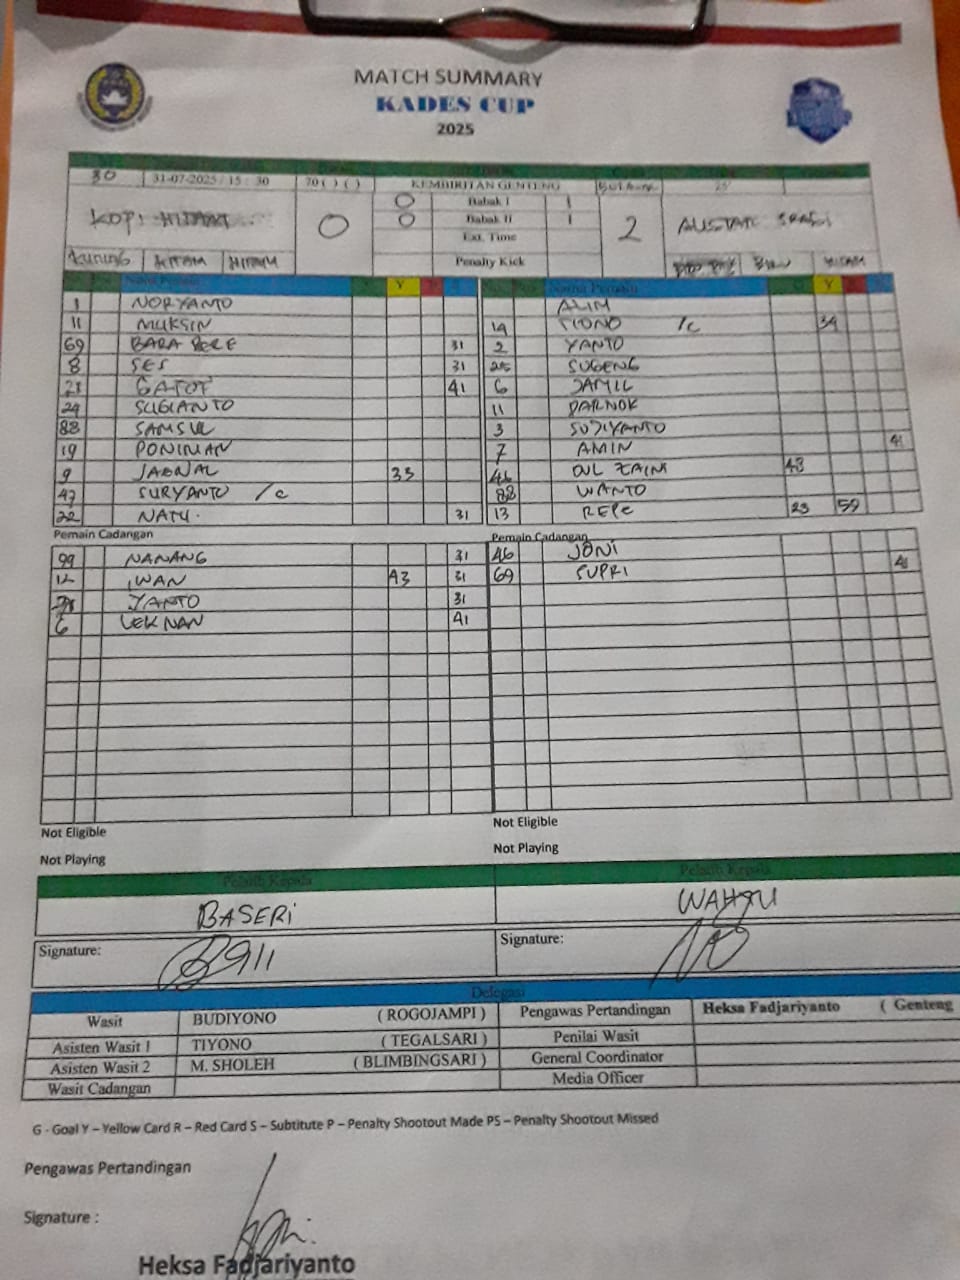 MATCH SUMMARY
KADES CUP
2025
30 31-07-2025 / 15 : 30 70 ( ) ( ) KEMBIRITAN GENTENG
KOPI HITAM 0 0 Babak I 1 2
0 Babak II 1
Ext. Time
Kuning HITAM HITAM Penalty Kick HITAM
Nama Pemain Y Nama Pemain Y
1 NORYANTO ALIM
11 MUKSIN 14 TIONO /c 34
69 BARA 31 2 YANTO
8 SES 31 25 SUGENG
21 GATOT 41 6 JAMIL
24 SUGIANTO 11 PARNOK
88 SAMSUL 3 SUDIYANTO
19 PONIMAN 7 AMIN 41
9 JAENAL 35 46 DUL ZAINI 43
47 SURYANTO /c 88 WANTO
22 NATU 31 13 REPC 23 59
Pemain Cadangan Pemain Cadangan
99 NANANG 31 46 JONI
12 IWAN 43 31 69 SUPRI 41
YANTO 31
6 LEK NAN 41
Not Eligible Not Eligible
Not Playing Not Playing
Pelatih Kepala Pelatih Kepala
BASERI WAHYU
Signature: Signature:
Delegasi
Wasit BUDIYONO ( ROGOJAMPI ) Pengawas Pertandingan Heksa Fadjariyanto ( Genteng
Asisten Wasit 1 TIYONO ( TEGALSARI ) Penilai Wasit
Asisten Wasit 2 M. SHOLEH ( BLIMBINGSARI ) General Coordinator
Wasit Cadangan Media Officer
G - Goal Y – Yellow Card R – Red Card S – Subtitute P – Penalty Shootout Made PS – Penalty Shootout Missed
Pengawas Pertandingan
Signature :
Heksa Fadjariyanto